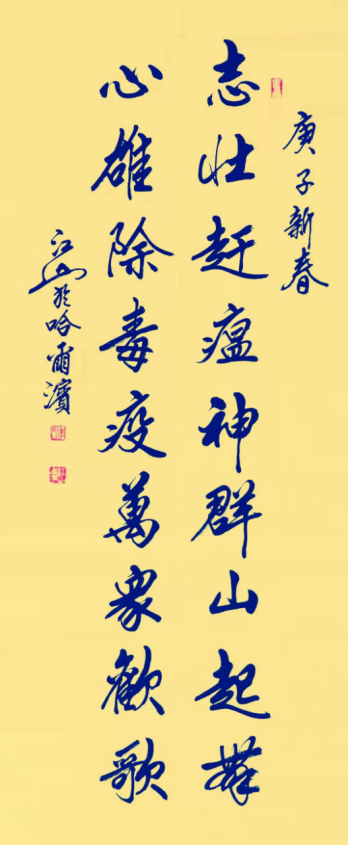 庚子新春
志壮赶瘟神群山起舞
心雄除毒疫萬衆歡歌
江山於哈爾濱